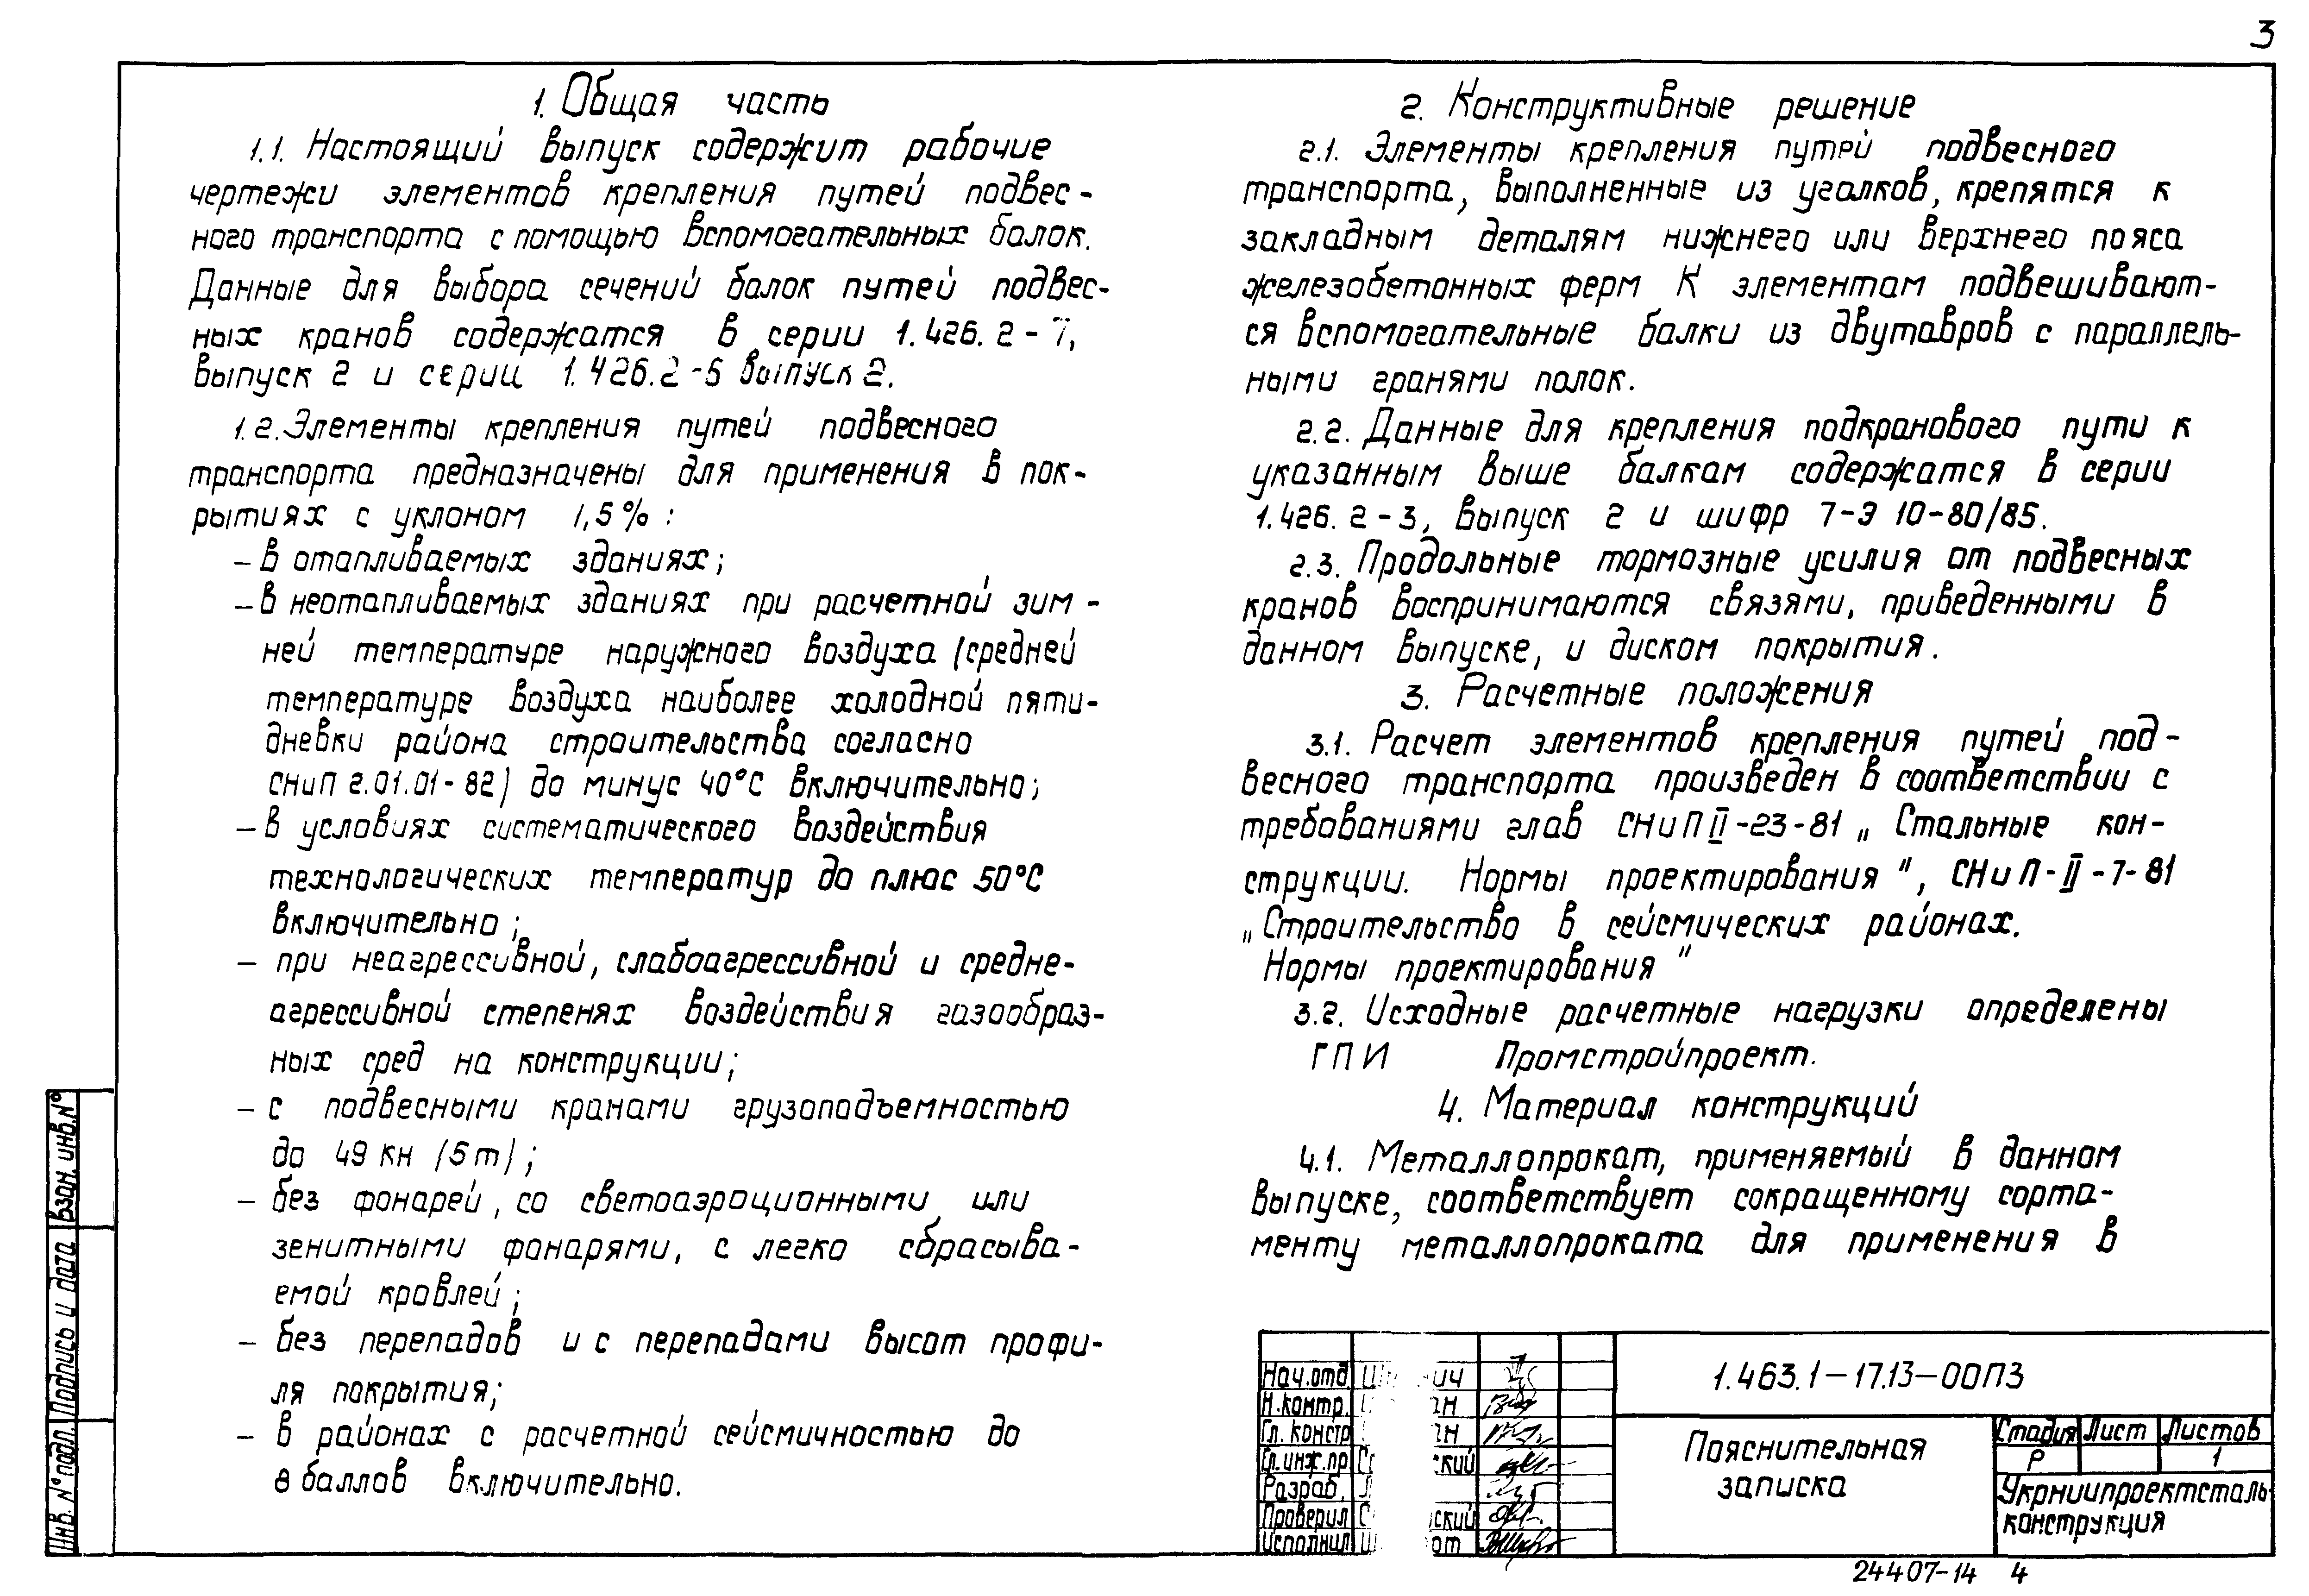 3
1. Общая часть
1.1. Настоящий выпуск содержит рабочие
чертежи элементов крепления путей подвес-
ного транспорта с помощью вспомогательных балок.
Данные для выбора сечений балок путей подвес-
ных кранов содержатся в серии 1.426.2-7,
выпуск 2 и серии 1.426.2-6 выпуск 2.
1.2. Элементы крепления путей подвесного
транспорта предназначены для применения в пок-
рытиях с уклоном 1,5%:
– в отапливаемых зданиях;
– в неотапливаемых зданиях при расчетной зим-
ней температуре наружного воздуха (средней
температуре воздуха наиболее холодной пяти-
дневки района строительства согласно
СНиП 2.01.01-82) до минус 40°С включительно;
– в условиях систематического воздействия
технологических температур до плюс 50°С
включительно;
– при неагрессивной, слабоагрессивной и средне-
агрессивной степенях воздействия газообраз-
ных сред на конструкции;
– с подвесными кранами грузоподъемностью
до 49 кн (5т);
– без фонарей, со светоаэроционными или
зенитными фонарями, с легко сбрасыва-
емой кровлей;
– без перепадов и с перепадами высот профи-
ля покрытия;
– в районах с расчетной сейсмичностью до
8 баллов включительно.
2. Конструктивные решение
2.1. Элементы крепления путей подвесного
транспорта, выполненные из уголков, крепятся к
закладным деталям нижнего или верхнего пояса
железобетонных ферм К элементам подвешивают-
ся вспомогательные балки из двутавров с параллель-
ными гранями полок.
2.2. Данные для крепления подкранового пути к
указанным выше балкам содержатся в серии
1.426.2-3, выпуск 2 и шифр 7-Э 10-80/85.
2.3. Продольные тормозные усилия от подвесных
кранов воспринимаются связями, приведенными в
данном выпуске, и диском покрытия.
3. Расчетные положения
3.1. Расчет элементов крепления путей под-
весного транспорта произведен в соответствии с
требованиями глав СНиП II-23-81 „Стальные кон-
струкции. Нормы проектирования", СНиП-II-7-81
„Строительство в сейсмических районах.
Нормы проектирования"
3.2. Исходные расчетные нагрузки определены
ГПИ Промстройпроект.
4. Материал конструкций
4.1. Металлопрокат, применяемый в данном
выпуске, соответствует сокращенному сорта-
менту металлопроката для применения в
Инв. № подл. Подпись и дата Взан. инв. №
Нач.отд.
Н.контр.
Гл. констр
Гл.инж.пр
Разраб.
Проверил
Исполнил
1.463.1-17.13-00ПЗ
Пояснительная
записка
Стадия Лист Листов
Р 1
Укрниипроектсталь-
конструкция
24407-14 4